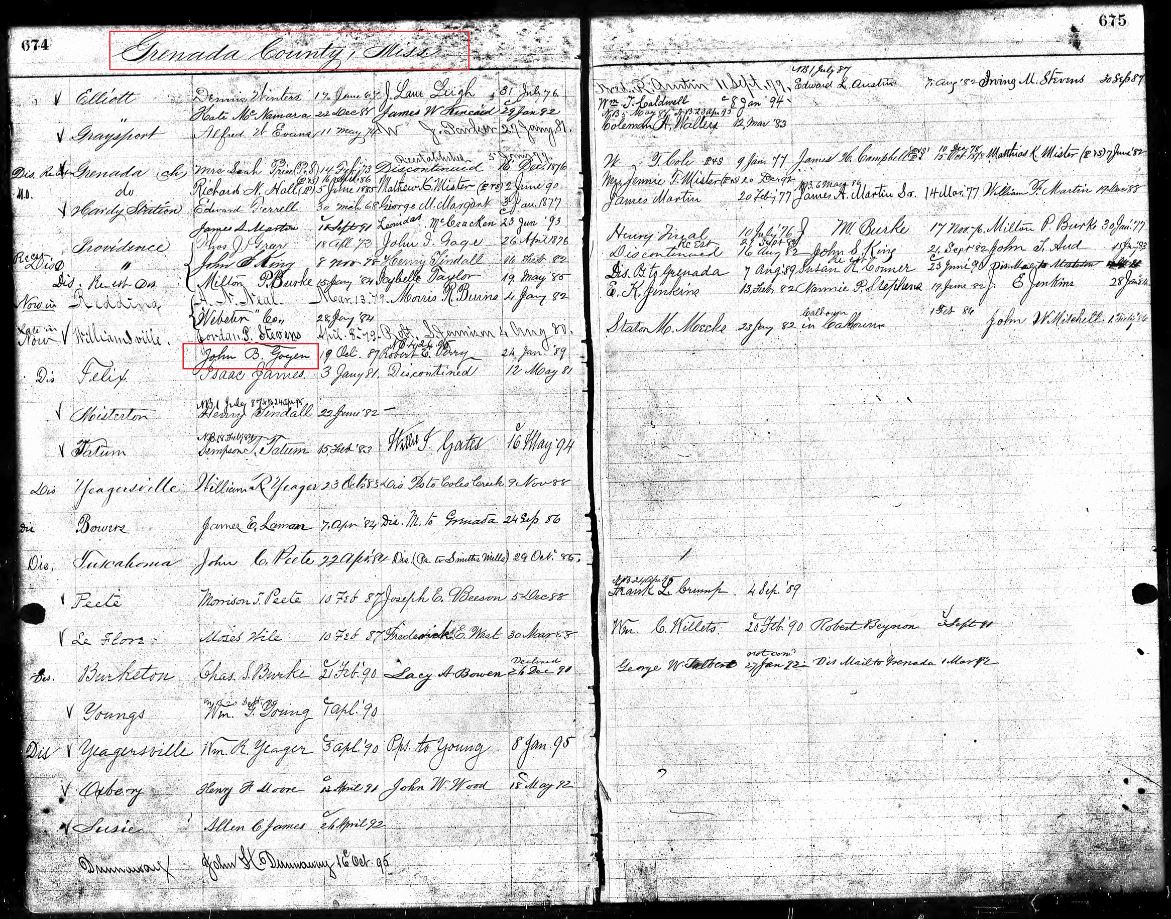 674
Grenada County, Miss
Elliott Dennis Winters 12 June 67 J Lane Leigh 31 July 76
" Kate McNamara 22 Dec 88 James W Kincaid 29 Jan 92
Graysport Alfred W Evans 11 May 74 W J 29 Jany 81
Reestablished
Grenada (ch) Mrs 14 Feb 73 Discontinued 16 Dec 1876
do Richard N. Hall (P.S) 5 June 1885 Mathew K. Mister (PS) 2 June 90
Hardy Station Edward Terrell 30 mch 68 George M. Margant 3 Jan. 1877
James S. Martin Leonidas McCracken 23 Jun '93
Providence Thos J. Gray 18 apl. 73 John T. Gage 26 April 1876
Dis " John S King 8 Nov 78 Henry Tindall 16 Feb 82
Dis. Milton P. Burke 15 Jany 84 Taylor 19 May 85
Now in Redding A. N. Neal Mar. 13. 79 Morris R Burns 4 Jany 82
Webster Co, 28 Jany 84
Late in
Now Williamsville Jordan P. Stevens Apl. 8. 79 Robt. S Jennison 4 Aug 80
John B. Goyen 19 Oct. 87 Robert E. Perry 24 Jan '89
Dis Felix Isaac James 3 Jany 81 Discontinued 12 May 81
Misterton Henry Tindall 22 June '82 —
Tatum Simpson Tatum 15 Feb '83 Willis I. Gates 16 May '94
Dis Yeagersville William R Yeager 23 Oct 83 Dis P to Coles Creek 9 Nov 88
Dis Bowers James E. Laman 7 Apr '84 Dis. M. to Grenada 24 Sep 86
Dis. Tuscahoma John C. Peete 22 Apr '84 Dis (Pa. to Smiths Mills) 29 Oct. 86.
Peete Morrison T. Peete 10 Feb 87 Joseph E. Beeson 5 Dec 88
Le Flore Moses Wile 10 Feb 87 Frederick E. West 30 Mar 88
Declined
Dis. Burketon Chas. S. Burke 21 Feb. 90 Lacy A Bowen
Youngs Wm. G. Young 7 apl. 90
Dis Yeagersville Wm. R. Yeager 3 apl '90 Ops. to Young 8 Jan. 95
Oxbery Henry F. Moore 12 April 90 John W. Wood 18 May 92
Susie Allen C James 26 April 92
Dunnaway John H. Dunnaway 16 Oct. 95
675
NB 1 July 87
Fred. R. Austin 11 Sept. 79. Edward L Austin 7 Aug '82 Irving M. Stevens 20 Sep 87
Wm T. Caldwell 8 Jan 94.
Coleman A. Walters 12 Mar '83
W. T. Cole 9 Jany 77. James H. Campbell Matthias K. Mister 7 June 82
Mrs Jennie T. Mister
James Martin 20 Feb '77 James A. Martin Sr. 14 Nov. 77 William F. Martin
Henry Krejal 10 July '76 J M. Burke 17 Nov 76 Milton P. Burke 30 Jan '77
Discontinued 16 Aug 82 John S. King 21 Sept 82 John L. Aud
Dis. P to Grenada 7 Aug '89 Susan R. Conner 23 June '90 Dis Mail to
E. K. Jenkins 13 Feb. 82 Nannie P. Stephens 19 June 82 J. E Jenkins
Staton M. Mecke 23 Jany 82 in Calhoun 1 Oct 84 John W. Mitchell
Frank L. Crump 4 Sep. '89
Wm. C. Willets, 20 Feb. 90 Robert Beynon
not com
George W Talbert 27 Jan 92 Dis Mail to Grenada 1 Mar 92